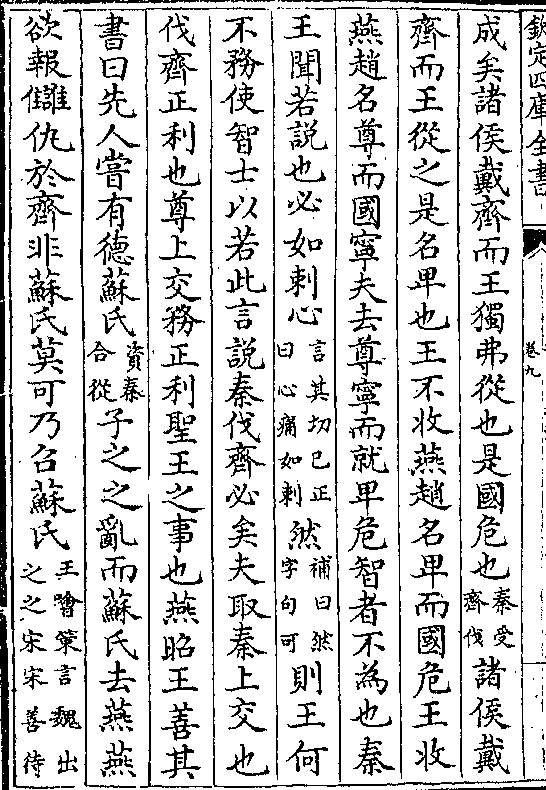 欽定四庫全書
卷九
成矣諸侯戴齊而王獨弗從也是國危也秦受齊伐諸侯戴
齊而王從之是名卑也王不收燕趙名卑而國危王收
燕趙名尊而國寧夫去尊寧而就卑危智者不為也秦
王聞若說也必如刺心言其切已正曰心痛如刺然補曰然字句可則王何
不務使智士以若此言說秦伐齊必矣夫取秦上交也
伐齊正利也尊上交務正利聖王之事也燕昭王善其
書曰先人嘗有德蘇氏資秦合從子之之亂而蘇氏去燕燕
欲報讎仇於齊非蘇氏莫可乃召蘇氏王噲策言魏出之之宋宋善待